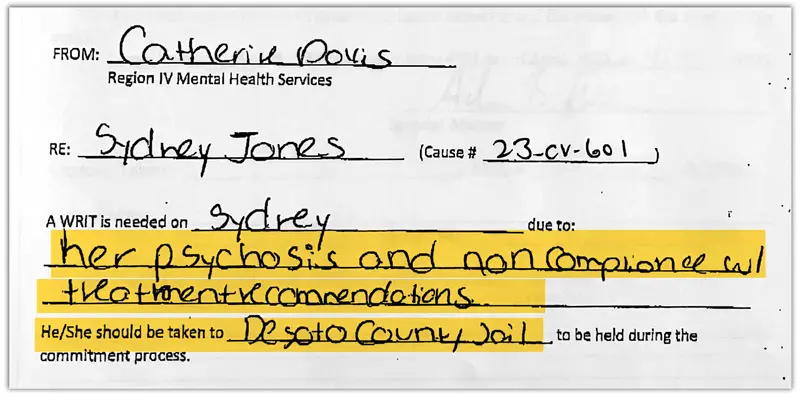 FROM: Catherine Davis
Region IV Mental Health Services
RE: Sydney Jones (Cause # 23-CV-601)
A WRIT is needed on Sydney due to:
her psychosis and non compliance w/
treatment recomendations
He/She should be taken to Desoto County Jail, to be held during the
commitment process.